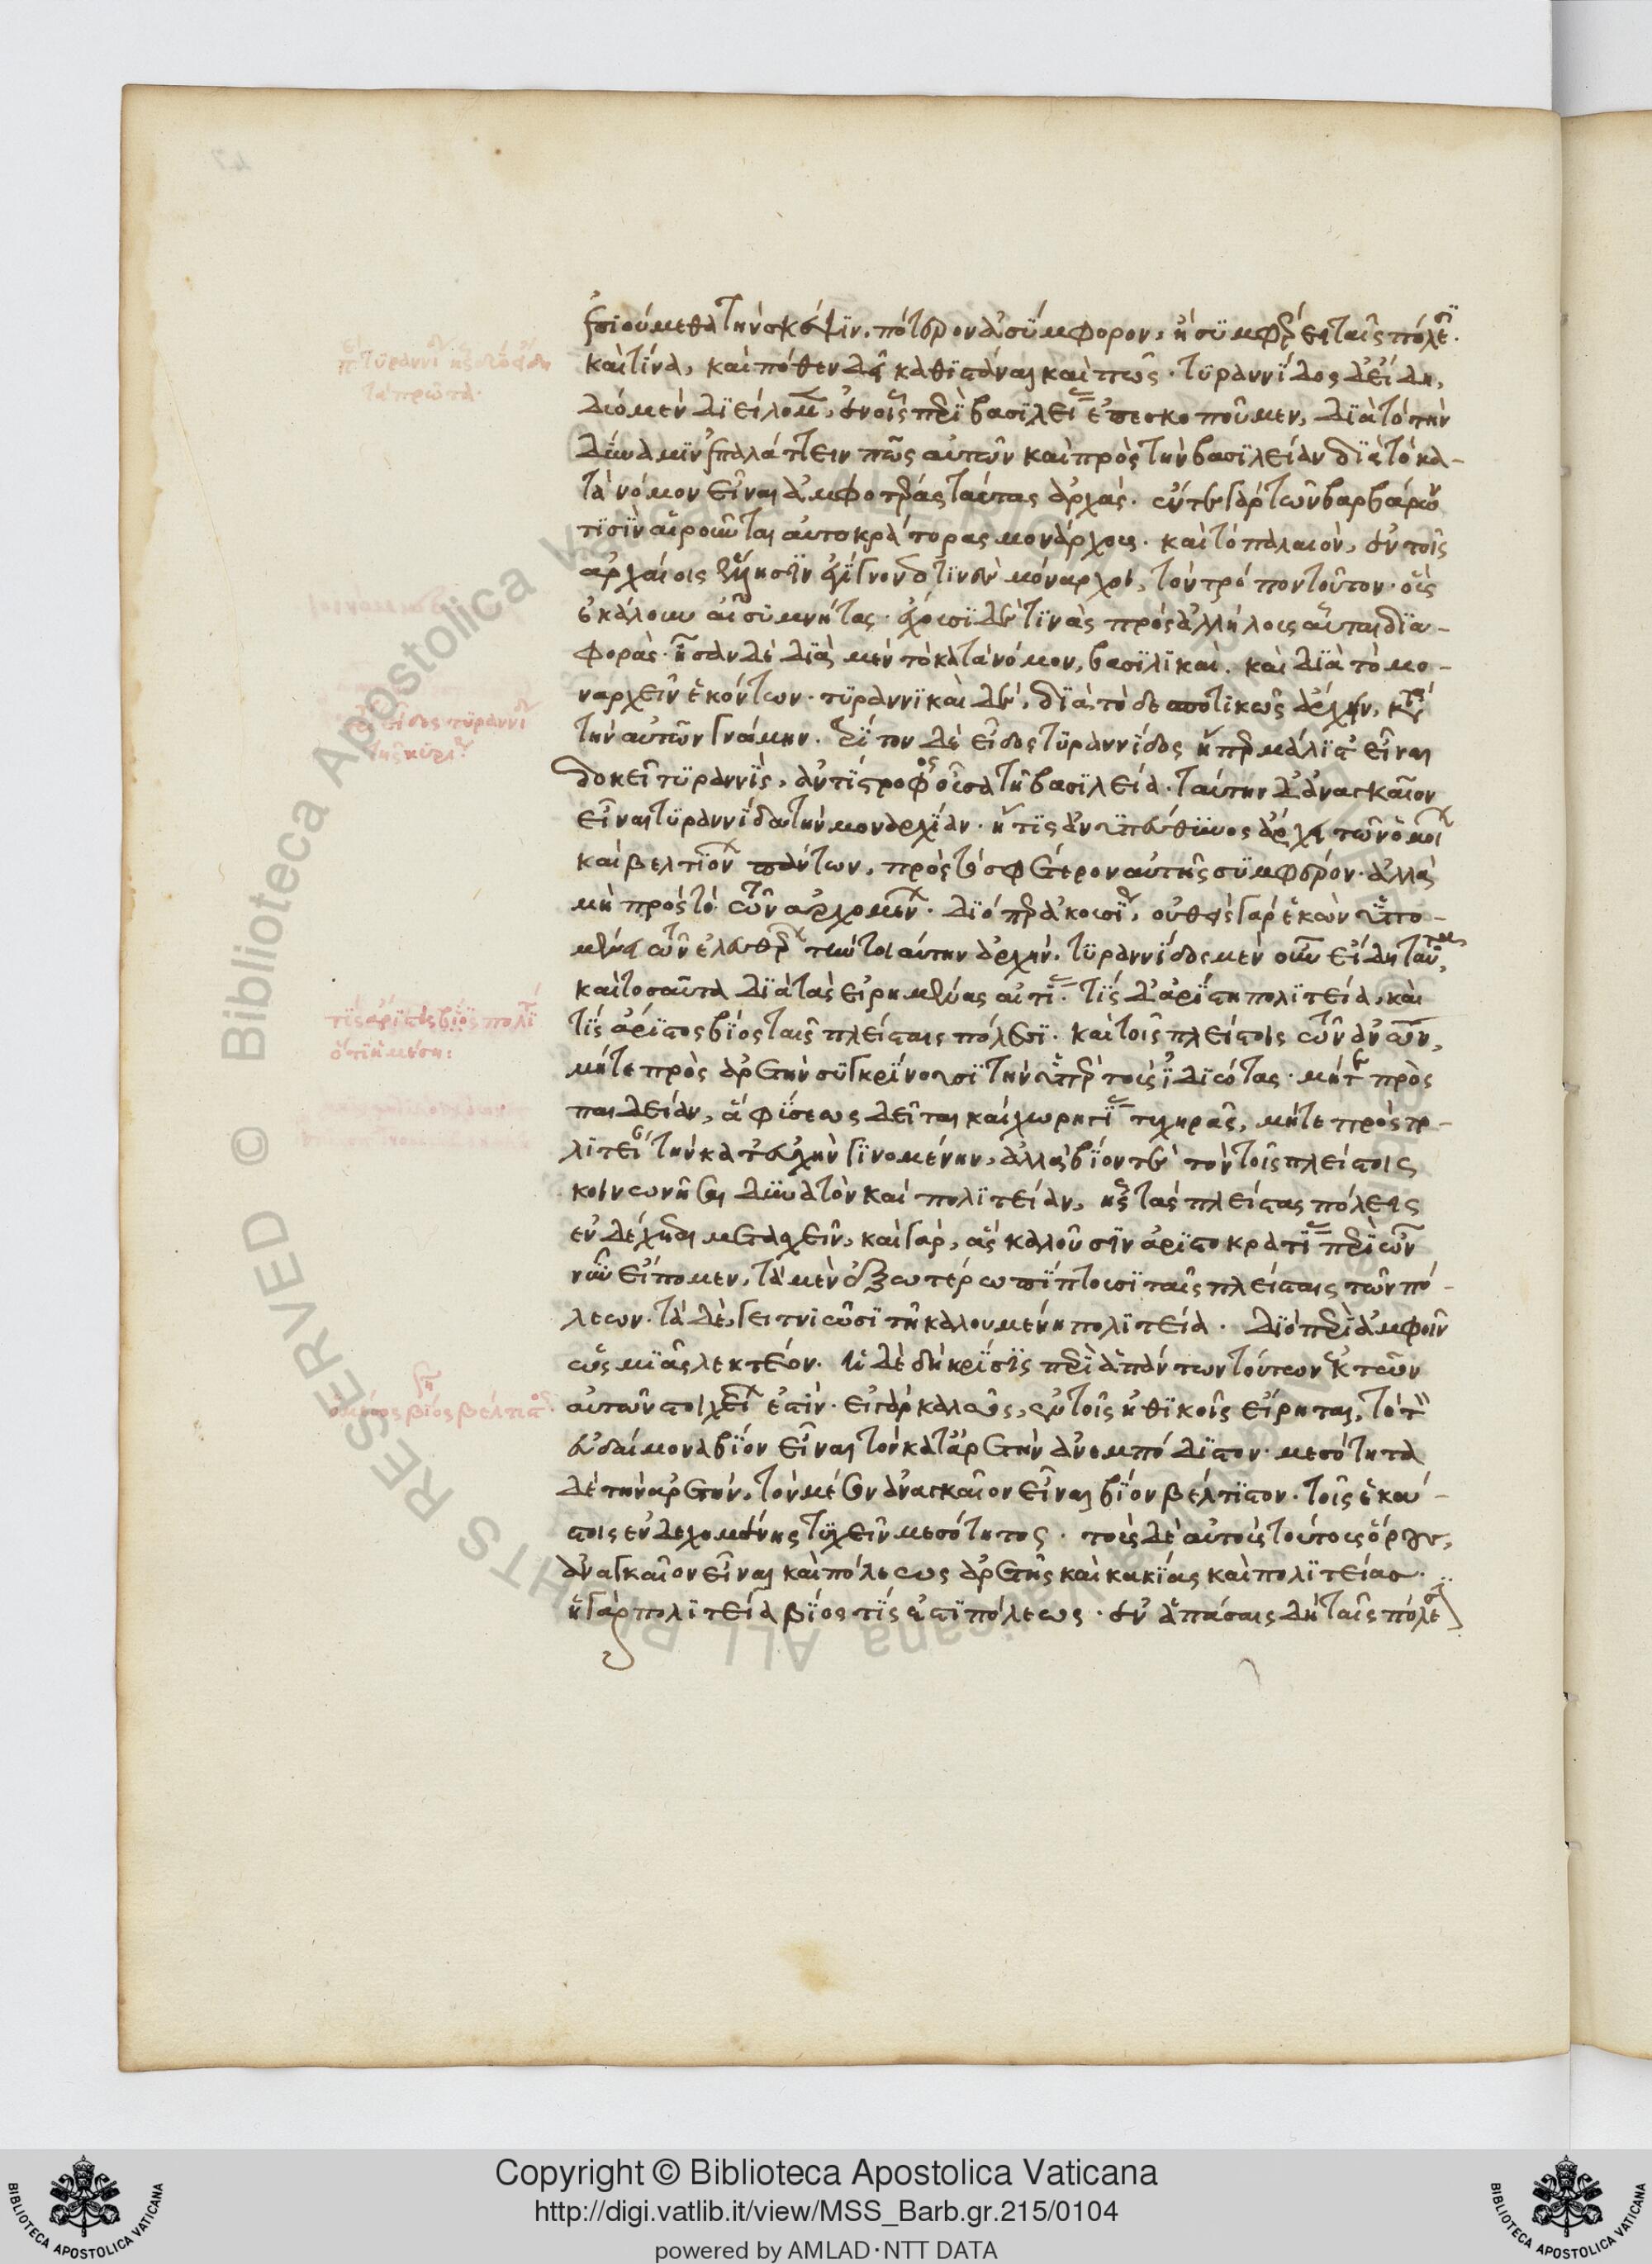 ἐποιούμεθα τὴν σκέψιν. πότερον ἀσύμφορον, ἢ συμφέρει ταῖς πόλεσι.
καὶ τίνα, καὶ πόθεν δεῖ καθιστάναι καὶ πῶς. τυραννίδος δ' εἴδη,
δύο μὲν διείλομεν, ἐν οἷς περὶ βασιλείας ἐπεσκοποῦμεν, διὰ τὸ τὴν
δύναμιν ἐπαλάττειν πως αὐτῶν καὶ πρὸς τὴν βασιλείαν διὰ τὸ κα-
τὰ νόμον εἶναι ἀμφοτέρας ταύτας ἀρχάς. ἔν τε γὰρ τῶν βαρβάρων
τισὶν αἱροῦνται αὐτοκράτορας μονάρχους. καὶ τὸ παλαιόν, ἐν τοῖς
ἀρχαίοις ἕλλησιν ἐγίγνοντό τινες μόναρχοι, τὸν τρόπον τοῦτον. οὓς
ἐκάλουν αἰσυμνήτας. ἔχουσι δέ τινας πρὸς ἀλλήλους αὗται δια-
φοράς. ἦσαν δὲ διὰ μὲν τὸ κατὰ νόμον, βασιλικαὶ. καὶ διὰ τὸ μο-
ναρχεῖν ἑκόντων. τυραννικαὶ δέ, διὰ τὸ δεσποτικῶς ἄρχειν, κατὰ
τὴν αὐτῶν γνώμην. τρίτον δὲ εἶδος τυραννίδος ἥπερ μάλιστ' εἶναι
δοκεῖ τυραννὶς, ἀντίστροφος οὖσα τῇ βασιλείᾳ. ταύτην δ' ἀναγκαῖον
εἶναι τυραννίδα τὴν μοναρχίαν. ἥτις ἀνυπεύθυνος ἄρχει τῶν ὁμοίων
καὶ βελτιόνων πάντων, πρὸς τὸ σφέτερον αὐτῆς συμφέρον. ἀλλὰ
μὴ πρὸς τὸ τῶν ἀρχομένων. διόπερ ἀκούσιος, οὐθεὶς γὰρ ἑκὼν ὑπο-
μένει τῶν ἐλευθέρων τὴν τοιαύτην ἀρχήν. τυραννίδος μὲν οὖν εἴδη ταῦτα,
καὶ τοσαῦτα διὰ τὰς εἰρημένας αἰτίας. τίς δ' ἀρίστη πολιτεία, καὶ
τίς ἄριστος βίος ταῖς πλείσταις πόλεσι. καὶ τοῖς πλείστοις τῶν ἀνθρώπων,
μήτε πρὸς ἀρετὴν συγκρίνουσι τὴν ὑπὲρ τοὺς ἰδιώτας. μήτε πρὸς
παιδείαν, ἃ φύσεως δεῖται καὶ χωρηγίας τυχηρᾶς, μήτε πρὸς πο-
λιτείαν τὴν κατ' εὐχὴν γινομένην, ἀλλὰ βίον τε τὸν τοῖς πλείστοις
κοινωνῆσαι δυνατὸν καὶ πολιτείαν, ἧς τὰς πλείστας πόλεις
ἐνδέχεται μετασχεῖν, καὶ γάρ, ἃς καλοῦσιν ἀριστοκρατίας περὶ ὧν
νῦν εἴπομεν, τὰ μὲν ἐξωτέρω πίπτουσι ταῖς πλείσταις τῶν πό-
λεων. τὰ δέ, γειτνιῶσι τῇ καλουμένῃ πολιτείᾳ. διὸ περὶ ἀμφοῖν
ὡς μιᾶς λεκτέον. ἡ δὲ δὴ κρίσις περὶ ἁπάντων τούτων ἐκ τῶν
αὐτῶν στοιχείων ἐστίν. εἰ γὰρ καλῶς, ἐν τοῖς ἠθικοῖς εἴρηται, τὸ τὸν
εὐδαίμονα βίον εἶναι τὸν κατ' ἀρετὴν ἀνεμπόδιστον. μεσότητα
δὲ τὴν ἀρετήν, τὸν μέσον ἀναγκαῖον εἶναι βίον βέλτιστον. τοῖς ἑκά-
στοις ἐνδεχομένης τυχεῖν μεσότητος. τοὺς δὲ αὐτοὺς τούτους ὅρους,
ἀναγκαῖον εἶναι καὶ πόλεως ἀρετῆς καὶ κακίας καὶ πολιτείας.
ἡ γὰρ πολιτεία βίος τίς ἐστι πόλεως. ἐν ἁπάσαις δὴ ταῖς πόλεσι
τίς ἄριστος βίος πολι
ὅτι ἡ μέση:
Copyright © Biblioteca Apostolica Vaticana
http://digi.vatlib.it/view/MSS_Barb.gr.215/0104
powered by AMLAD·NTT DATA
BIBLIOTECA APOSTOLICA VATICANA
BIBLIOTECA APOSTOLICA VATICANA